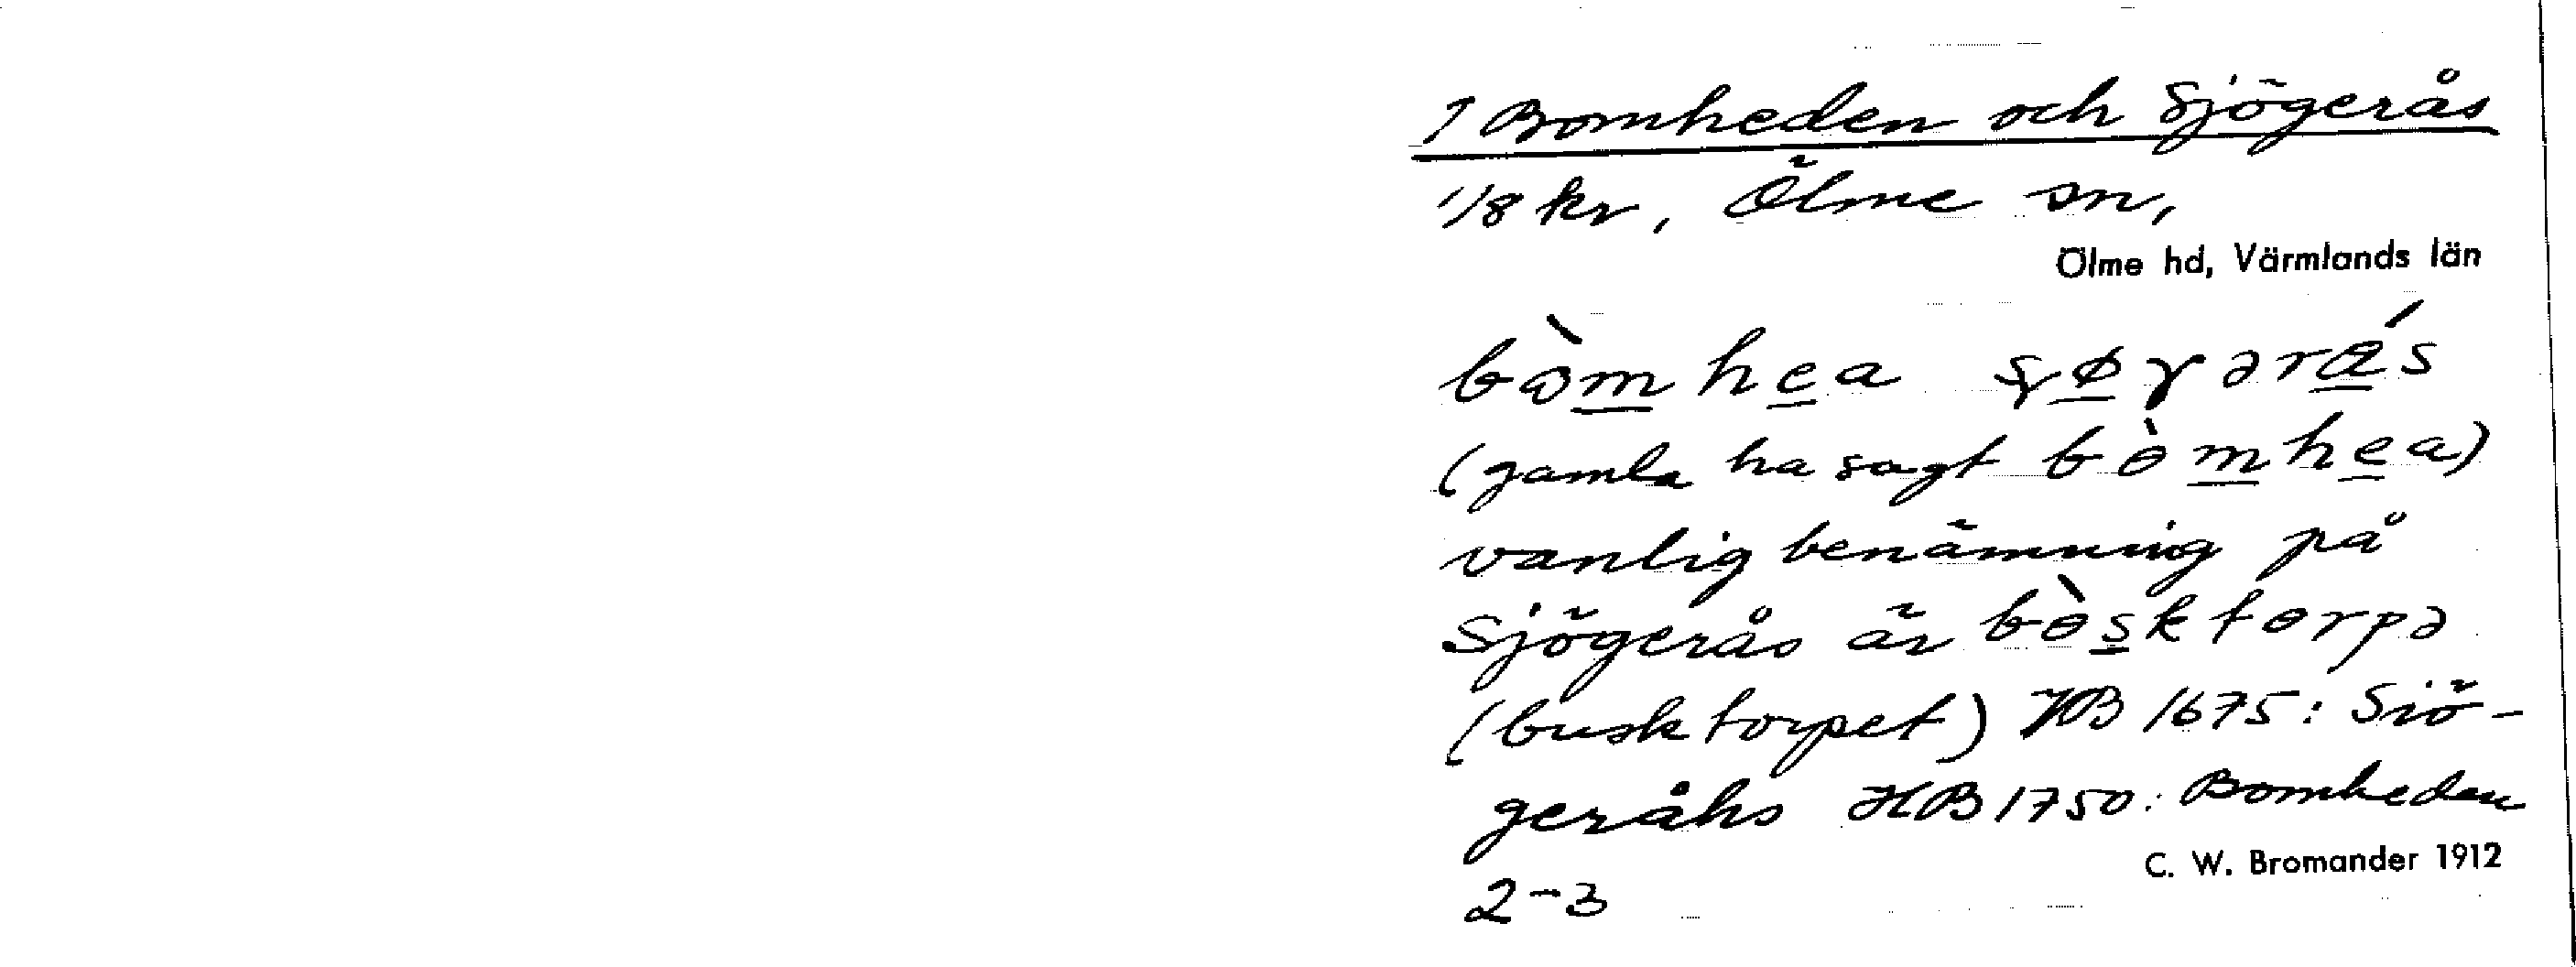 1 Bomheden och Sjögerås
1/8 kr, Ölme sn,
Ölme hd, Värmlands län
bòmhea sjøgərås
(gamla ha sagt bòmhea)
vanlig benämning på
Sjögerås är bòsktorpə
(busktorpet) JB 1675: Siö-
geråhs HB 1750: Bomheden
C. W. Bromander 1912
2-3